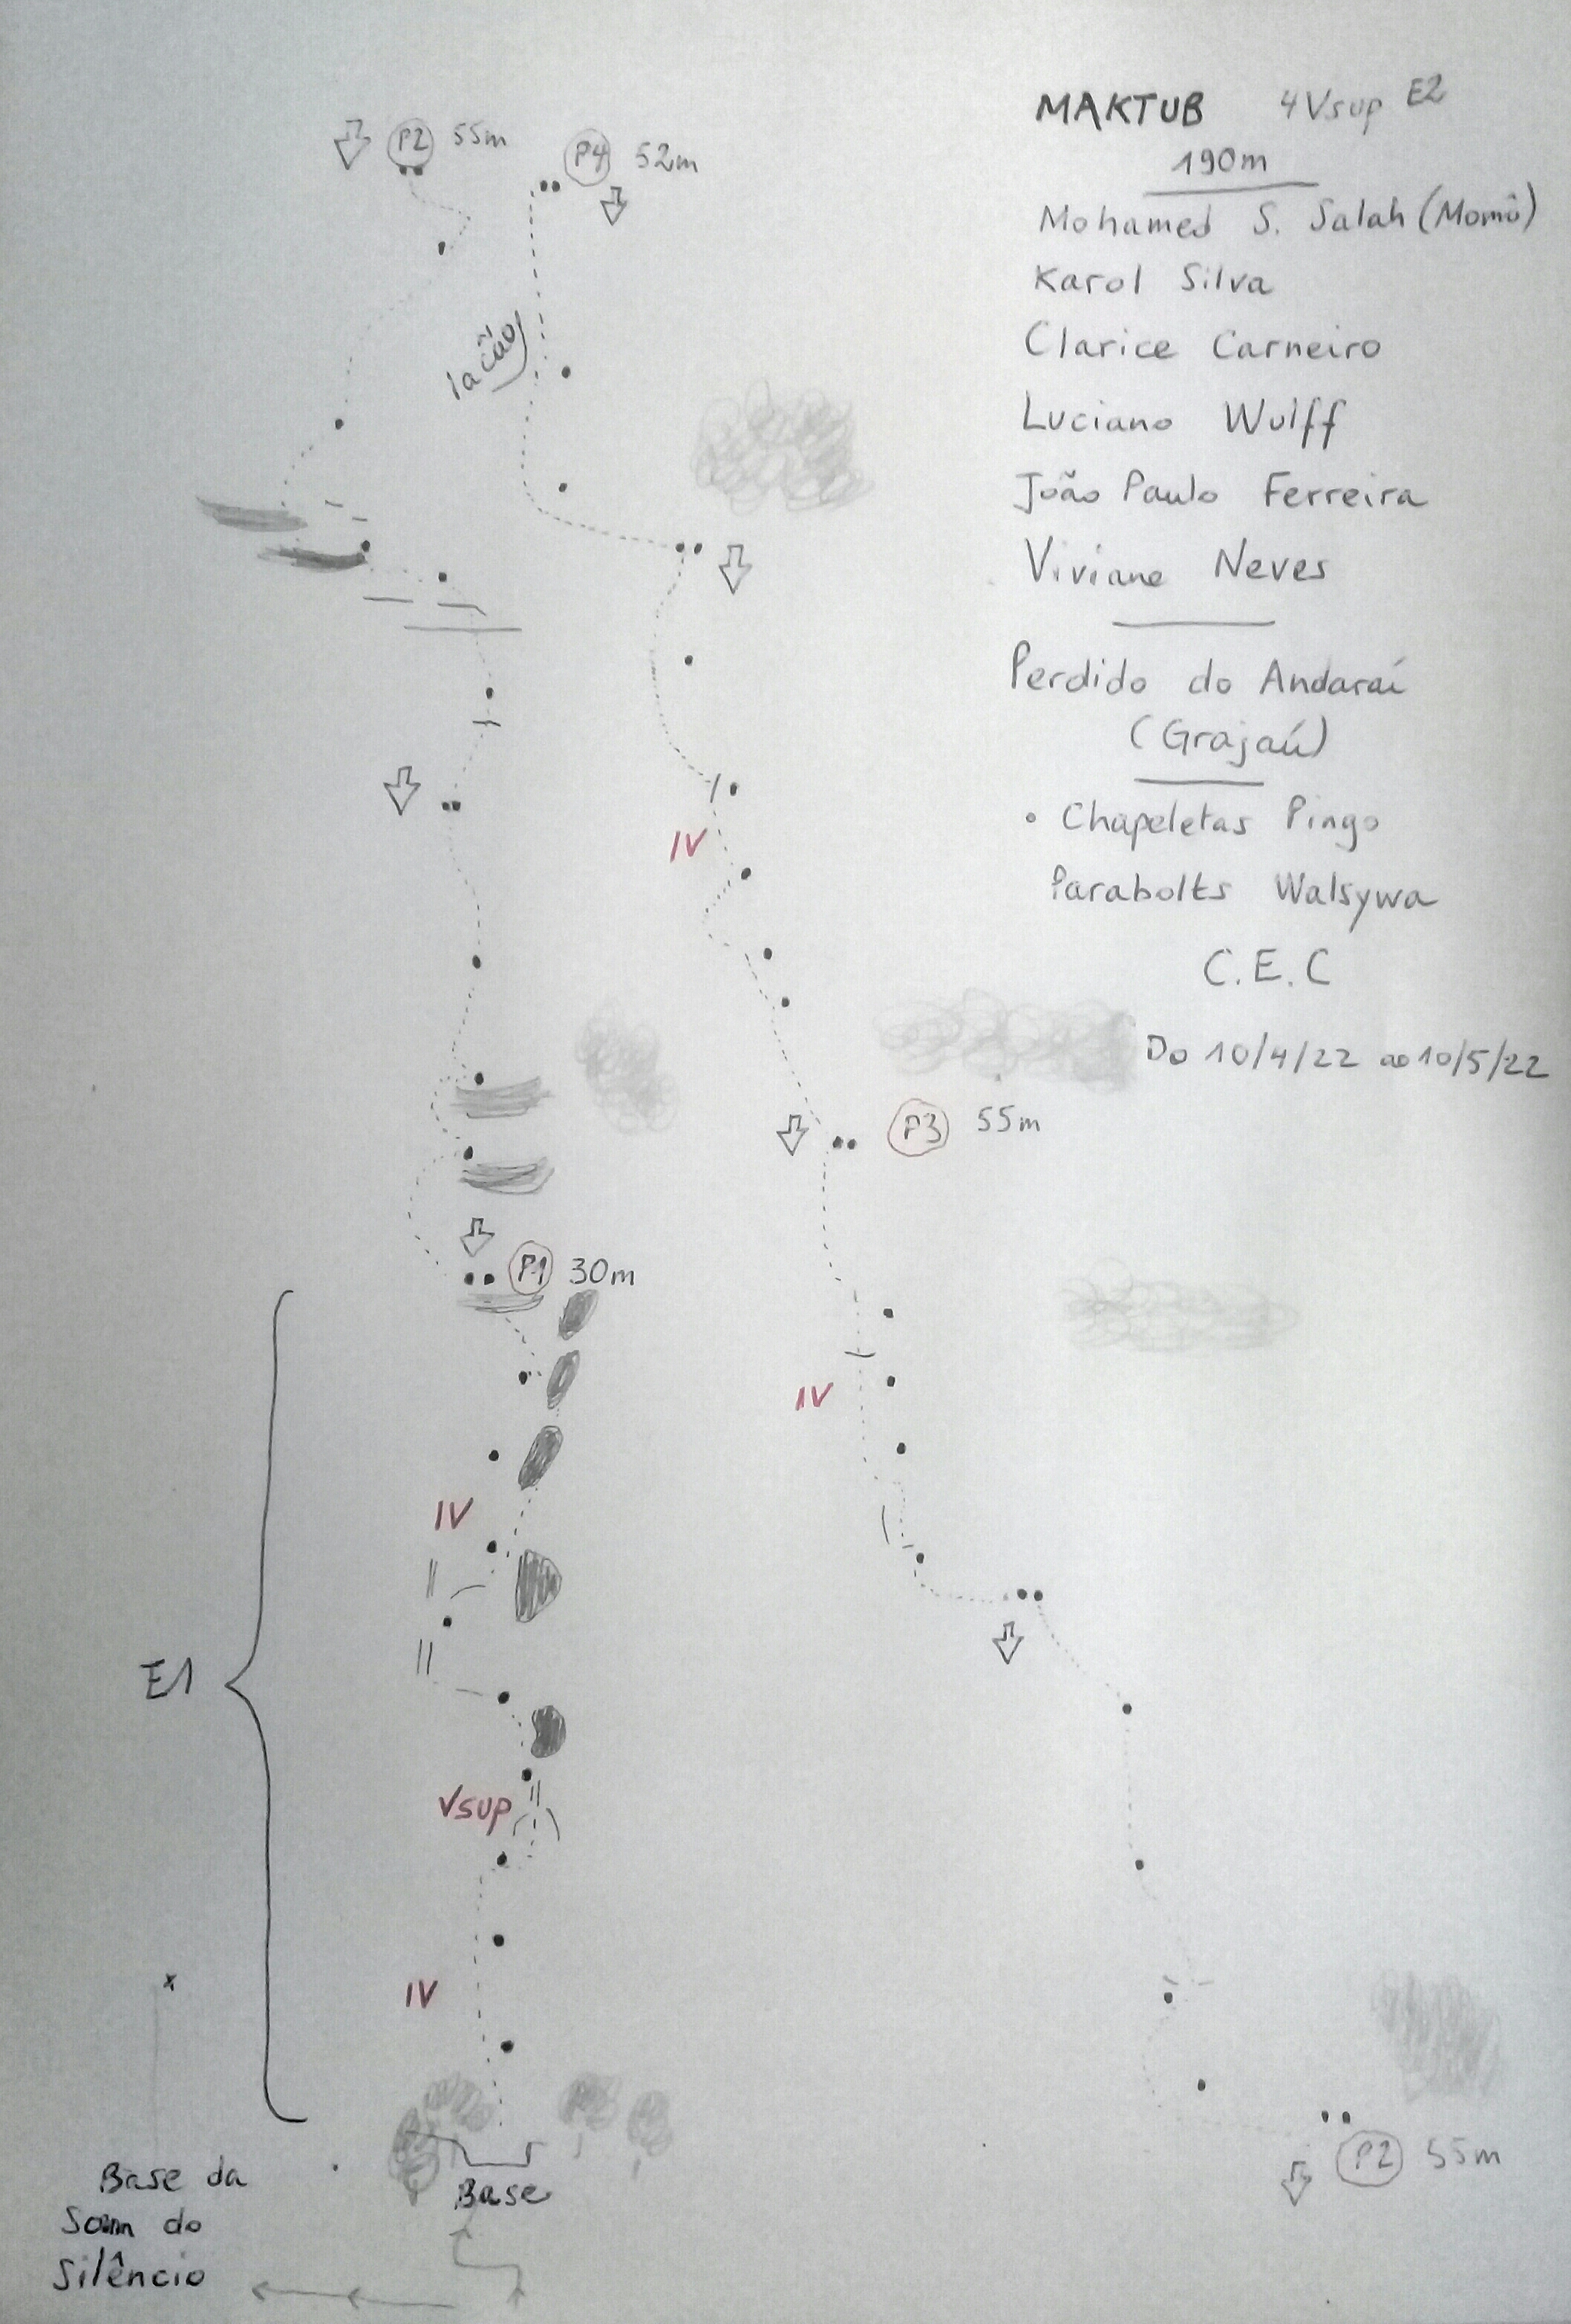 MAKTUB 4Vsup E2
190m
Mohamed S. Salah (Momô)
Karol Silva
Clarice Carneiro
Luciano Wulff
João Paulo Ferreira
Viviane Neves
Perdido do Andaraí
(Grajaú)
• Chapeletas Pingo
Parabolts Walsywa
C.E.C
Do 10/4/22 ao 10/5/22
P2 55m
P4 52m
IV
P3 55m
P1 30m
IV
IV
E1
Vsup
IV
P2 55m
Base
Base da
Som do
Silêncio